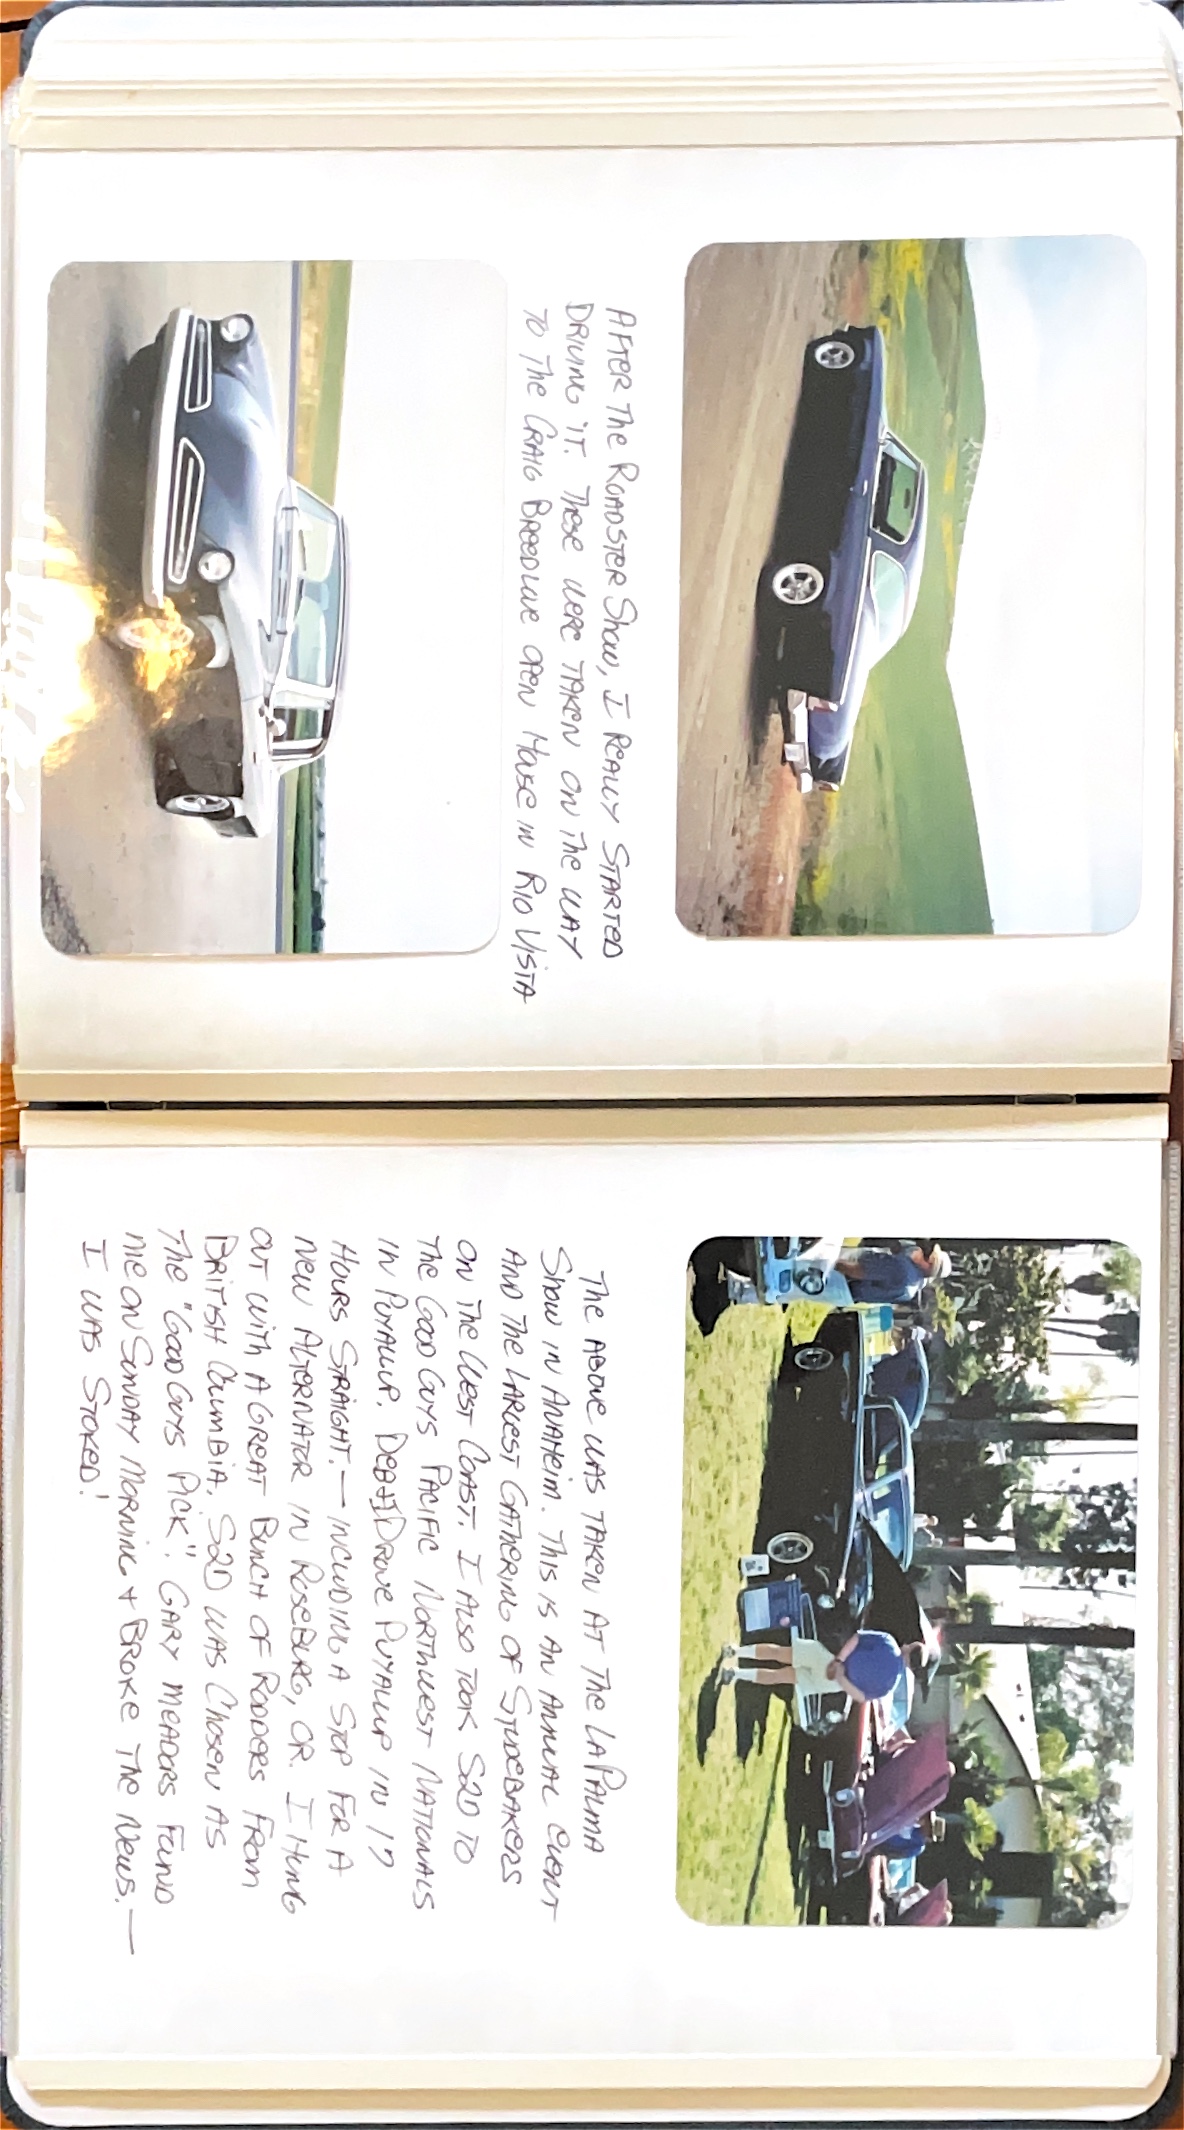 AFTER THE ROADSTER SHOW, I REALLY STARTED
DRIVING IT. THESE WERE TAKEN ON THE WAY
TO THE CRAIG BREEDLOVE OPEN HOUSE IN RIO VISTA
THE ABOVE WAS TAKEN AT THE LA PALMA
SHOW IN ANAHEIM. THIS IS AN ANNUAL EVENT
AND THE LARGEST GATHERING OF STUDEBAKERS
ON THE WEST COAST. I ALSO TOOK S2D TO
THE GOOD GUYS PACIFIC NORTHWEST NATIONALS
IN PUYALLUP. DEB + I DROVE PUYALLUP IN 17
HOURS STRAIGHT. — INCLUDING A STOP FOR A
NEW ALTERNATOR IN ROSEBURG, OR. I HUNG
OUT WITH A GREAT BUNCH OF RODDERS FROM
BRITISH COLUMBIA. S2D WAS CHOSEN AS
THE "GOOD GUYS PICK". GARY MEADORS FOUND
ME ON SUNDAY MORNING + BROKE THE NEWS. —
I WAS STOKED!